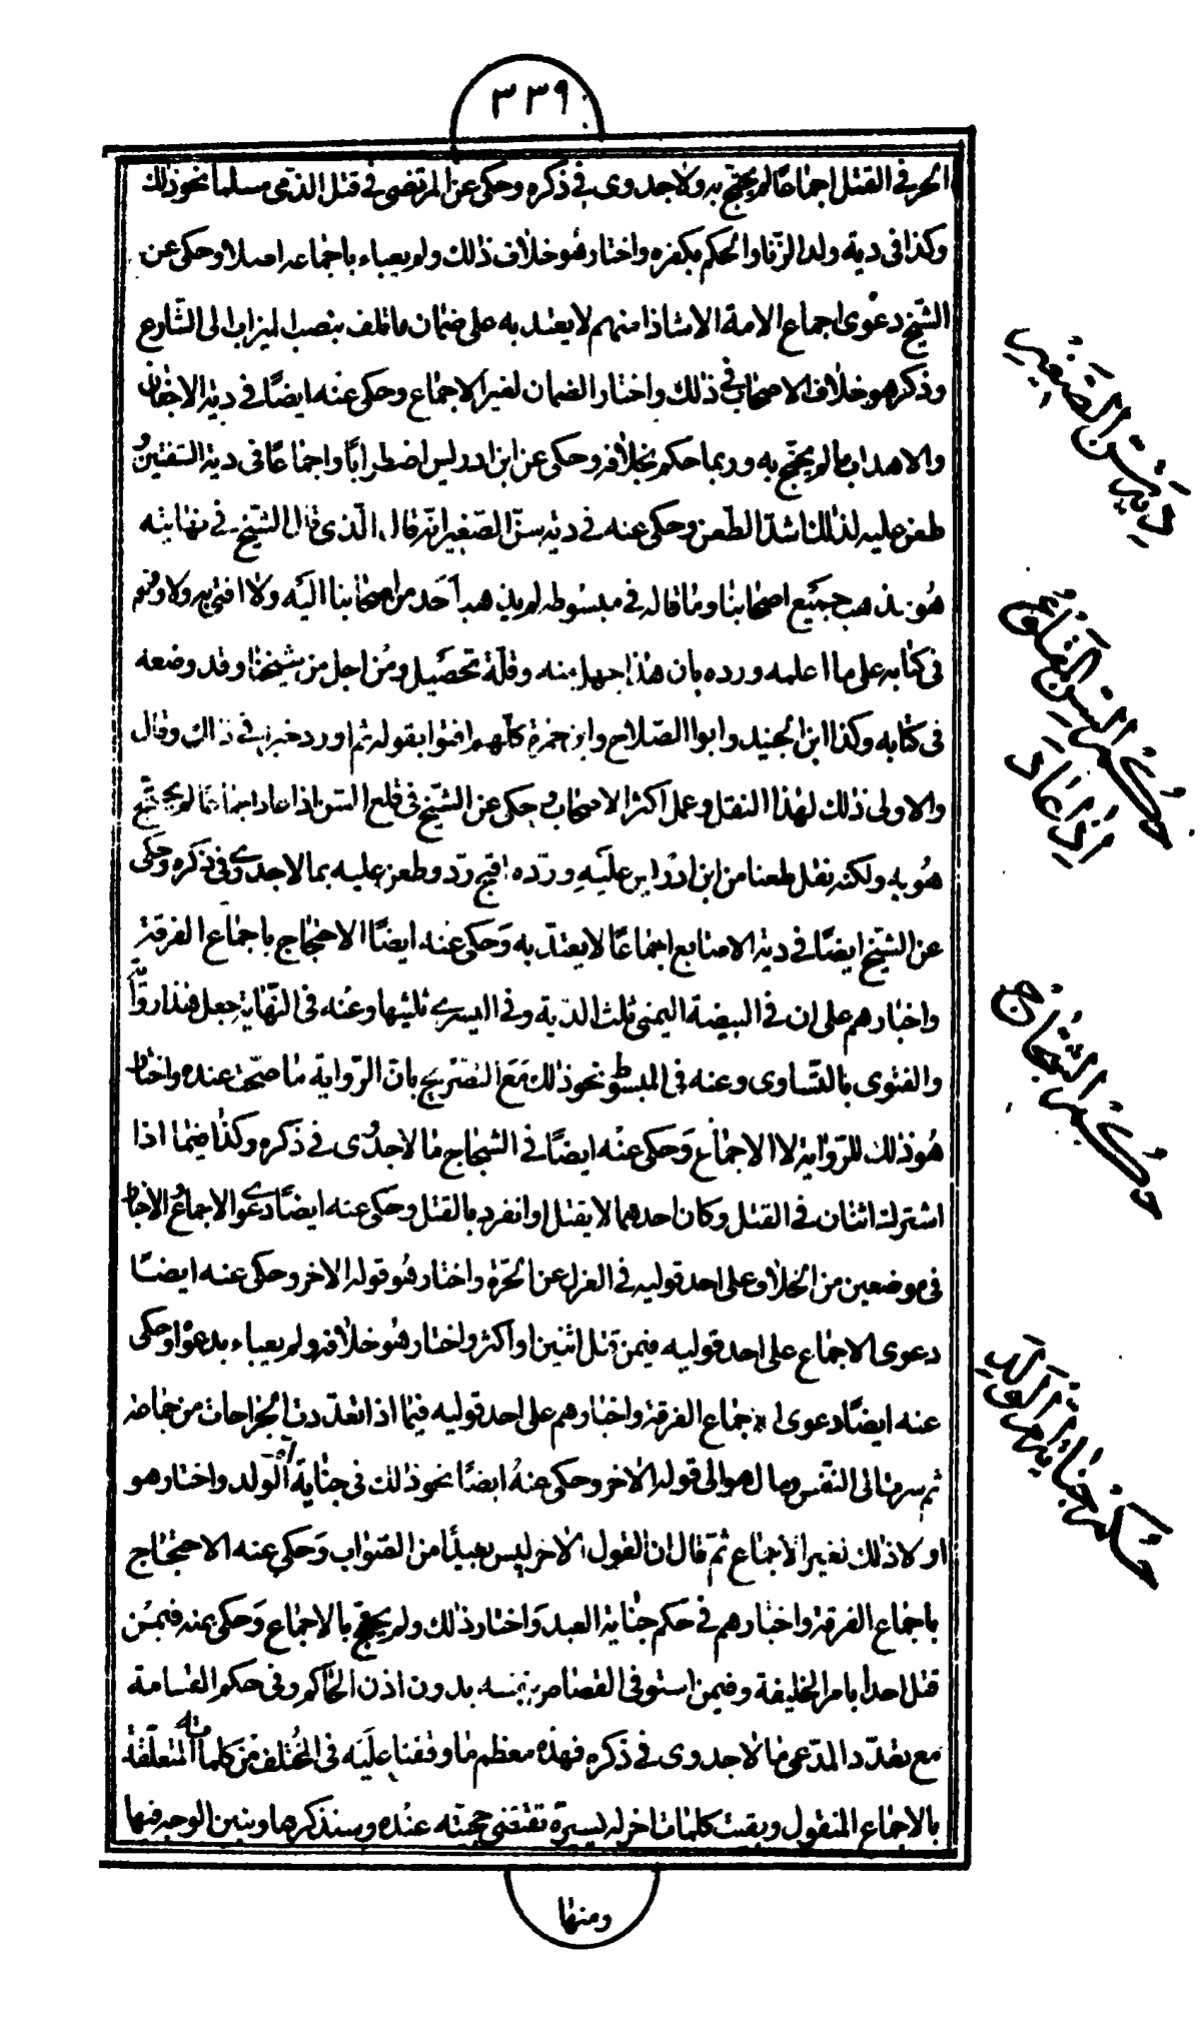 ٣٣٩
الحر في القتل اجماعا لم يحتج به ولا جدوى في ذكره وحكى عن المرتضى في قتل الذمى مسلما نحو ذلك
وكذا فى دية ولد الزنا والحكم بكفره واختار هو خلاف ذلك ولم يعباء باجماعه اصلا وحكى عن
الشيخ دعوى اجماع الامة الا شاذا منهم لا يعتد به على ضمان ما تلف بنصب الميزاب الى الشارع
وذكر هو خلاف الاصحاب في ذلك واختار الضمان لغير الاجماع وحكى عنه ايضًا في دية الاجفان
والاهداب ما لم يحتج به وربما حكم بخلافه وحكى عن ابن ادريس اضطرابًا واجماعًا فى دية الشفتين و
طعن عليه لذلك اشد الطعن وحكى عنه في دية سن الصغير انه قال الذى قال الشيخ في نهايته
هو مذهب جميع اصحابنا وما قاله في مبسوطه لم يذهب أحد من اصحابنا اليه ولا افتى به ولا وضعه
فى كتابه على ما اعلمه ورده بان هذا جهل منه وقلّة تحصيل ومن اجل من شيخنا وقد وضعه
فى كتابه وكذا ابن الجنيد وابو الصلاح وابن حمزة كلّهم افتوا بقوله ثم اورد خبرا في ذلك وقال
والاولى ذلك لهذا النقل وعمل اكثر الاصحاب وحكى عن الشيخ فى قلع السن اذا عاد اجماعا لم يحتج
هو به ولكنه نقل طعنا من ابن ادريس عليه ورده اقبح ردّ وطعن عليه بما لا جدوى في ذكره وحكى
عن الشيخ ايضًا في دية الاصابع اجماعًا لا يعتد به وحكى عنه ايضًا الاحتجاج باجماع الفرقة
واخبارهم على ان في البيضة اليمنى ثلث الدية وفي اليسرى ثلثيها وعنه فى النهاية جعل هذا رواية
والفتوى بالتساوى وعنه في المبسوط نحو ذلك مع التصريح بان الرواية ما صحت عنده واختار
هو ذلك للرواية لا الاجماع وحكى عنه ايضًا في الشجاج ما لا جدوى في ذكره وكذا فيما اذا
اشترك اثنان في القتل وكان احدهما لا يقتل لو انفرد بالقتل وحكى عنه ايضًا دعوى الاجماع والاخبار
في موضعين من الخلاف على احد قوليه في العزل عن الحرّة واختار هو قوله الاخر وحكى عنه ايضًا
دعوى الاجماع على احد قوليه فيمن قتل اثنين او اكثر واختار هو خلافه ولم يعباء بدعواه وحكى
عنه ايضًا دعوى اجماع الفرقة واخبارهم على احد قوليه فيما اذا تعددت الجراحات من جماعة
ثم سرت الى النفس ومال هو الى قوله الاخر وحكى عنه ايضًا نحو ذلك في جناية ام الولد واختار هو
اولا ذلك لغير الاجماع ثم قال ان القول الاخر ليس بعيدًا من الصواب وحكى عنه الاحتجاج
باجماع الفرقة واخبارهم في حكم جناية العبد واختار ذلك ولم يحتج بالاجماع وحكى عنه فيمن
قتل احدا بامر الخليفة وفيمن استوفى القصاص بنفسه بدون اذن الحاكم وفى حكم القسامة
مع تعدد المدّعى ما لا جدوى في ذكره فهذه معظم ما وقفنا عليه فى المختلف من كلماته المتعلقة
بالاجماع المنقول وبقيت كلمات اخر له يسيرة تقتضى حجيته عنده وسنذكرها ونبين الوجه فيها
ومنها
دية سن الصغير
حكم السن المقلوع
اذا عاد
حكم الشجاج
حكم جناية ام الولد